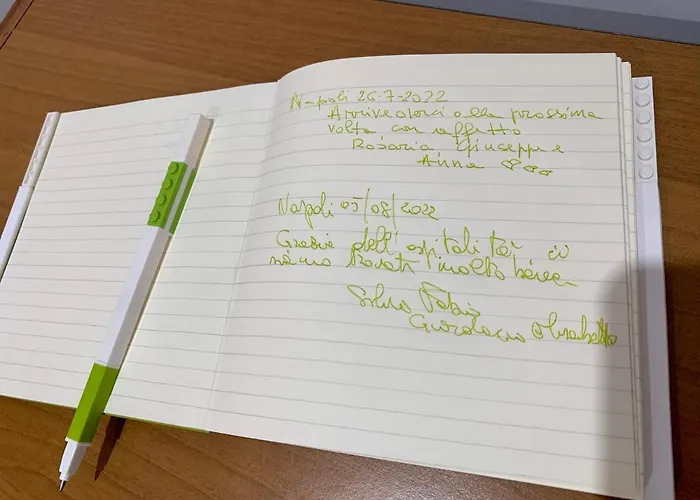 Napoli 26-7-2022
Arrivederci alla prossima
volta con affetto
Rosaria Giuseppe
Anna
Napoli 05/08/2022
Grazie dell'ospitalità ci
siamo trovati molto bene
Silvia Fabio
Elisabetta